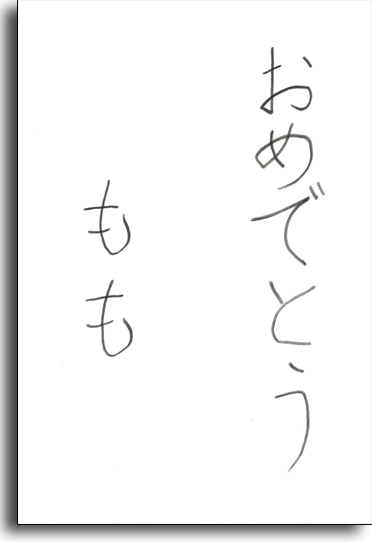 おめでとう
もも